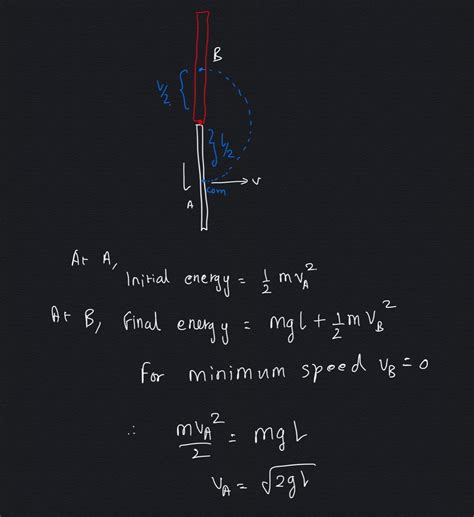 B
L/2
L/2
L
com
v
A
At A,
Initial energy = 1/2 mv_A^2
At B, final energy = mgl + 1/2 mv_B^2
For minimum speed v_B = 0
∴ mv_A^2/2 = mgL
v_A = √2gl